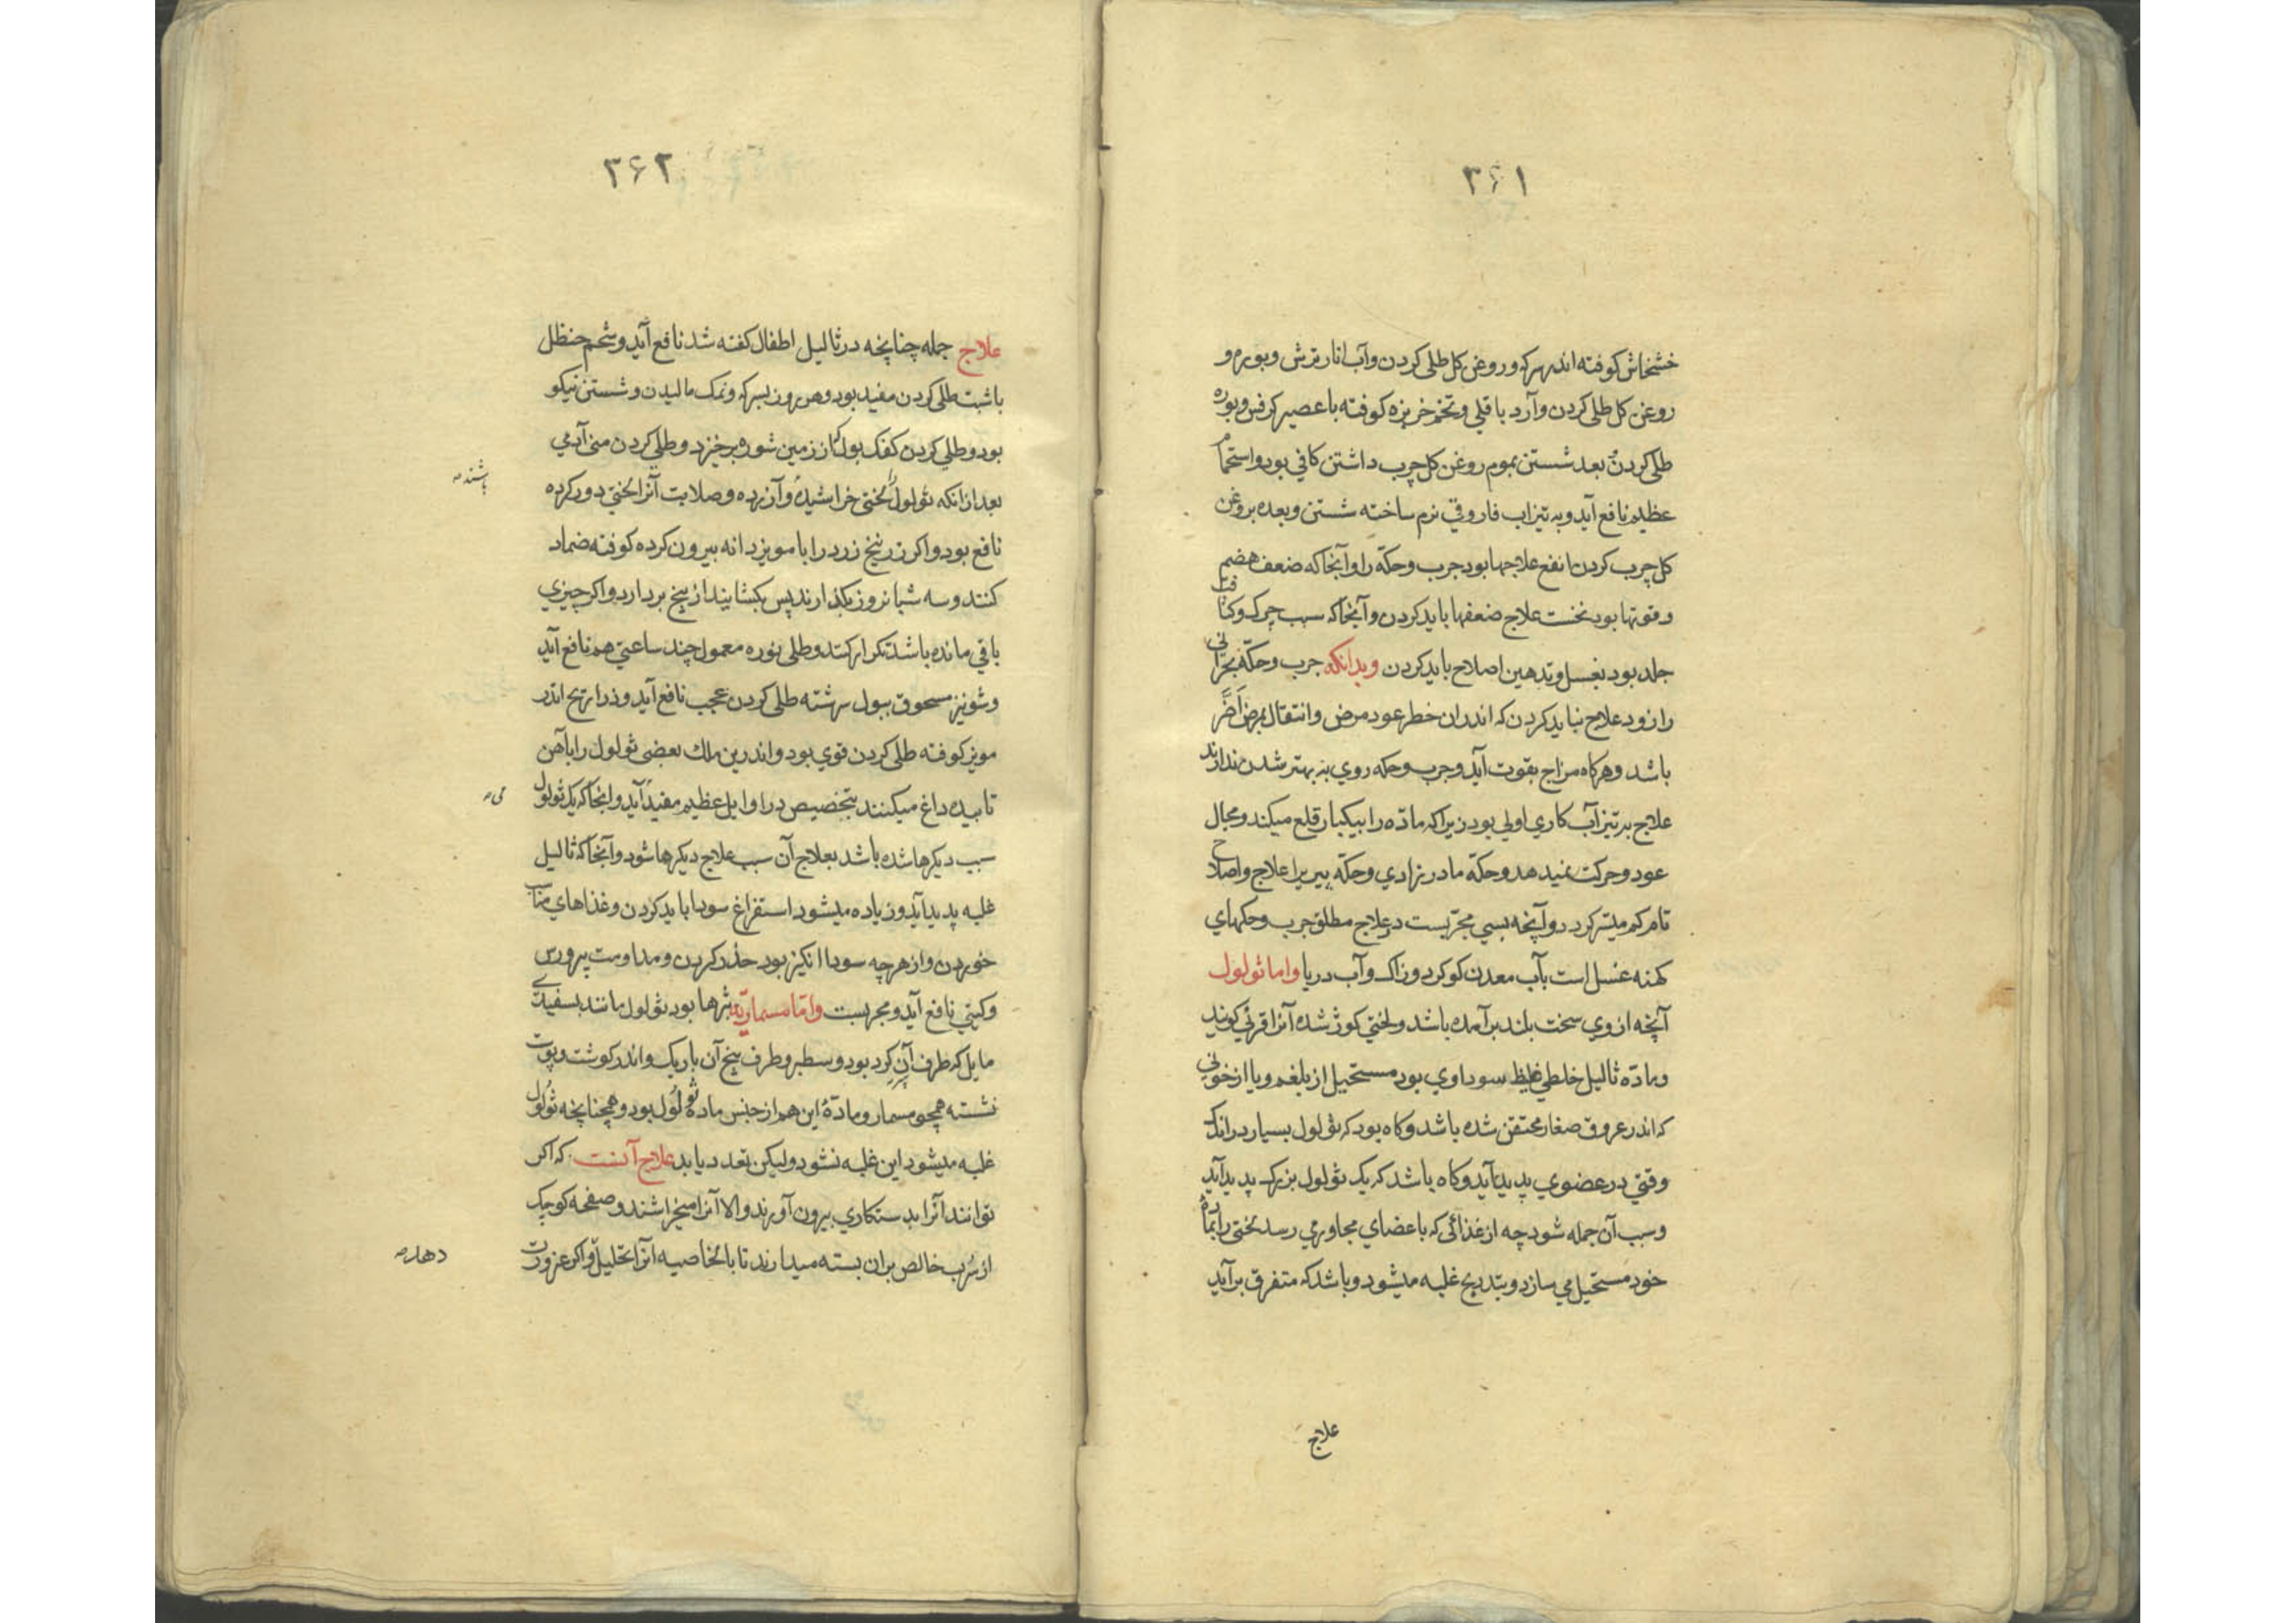 ۳۶۱
خشخاش کوفته اندر سرکه و روغن کل طلی کردن وآب انار ترش و بوره و
روغن کل طلی کردن وآرد باقلی و تخم خربزه کوفته با عصیر کرفس وبوره
طلی کردن بعد شستن بموم روغن کل چرب داشتن کافی بود و استحمام
عظیم نافع آید و به تیزاب فاروقی نرم ساخته شستن و بعده بروغن
کل چرب کردن انفع علاجها بود جرب وحکّه را وآنجا که ضعف هضم
وقوتها بود نخست علاج ضعفها باید کردن وآنجا که سبب چرک وکثافت
جلد بود بغسل وتدهین اصلاح باید کردن وبدانکه جرب وحکّه بحرانی
را زود علاج نباید کردن که اندران خطر عود مرض وانتقال بمرض اَضَرّ
باشد وهرکاه مزاج بقوت آید وجرب وحکه روی به بهتر شدن ندارند
علاج بر تیزآب کاری اولی بود زیرا که مادّه را بیکبار قلع میکند ومجال
عود وحرکت نمیدهد وحکّه مادر زادی وحکّه پیر یرا علاج واصلاح
تام کم میسّر کردد وآنچه بسی مجرّبست در علاج مطلق جرب وحکهای
کهنه غسل است بآب معدن کوکرد وزاک وآب دریا واما ثولول
آنچه از وی سخت بلند برآمده باشد ولختی کوژ شده آنرا قرنی کویند
ومادّه ثالیل خلطی غلیظ سوداوی بود مستحیل از بلغم ویا از خونی
که اندر عروق صغار محتقن شده باشد وکاه بود که ثولول بسیار در اندک
وقتی در عضوی پدید آید وکاه باشد که یک ثولول بزرک پدید آید
وسبب آن جمله شود چه از غذائی که باعضای مجاور می رسد لختی را بمادّه
خود مستحیل می سازد وبتدریج غلبه میشود وباشد که متفرق برآید
علاج
۳۶۲
علاج جمله چنانچه در ثالیل اطفال کفته شد نافع آید وشحم حنظل
باشبت طلی کردن مفید بود وهر روز بسرکه ونمک مالیدن وشستن نیکو
بود وطلی کردن کفک بول که از زمین شوره برخیزد وطلی کردن منی آدمی
بعد ازانکه ثولول لختی خراشیده وآزرده وصلابت آنرا لختی دور کرده
باشند
نافع بود واکر زرنیخ زرد را با مویز دانه بیرون کرده کوفته ضماد
کنند وسه شبانروز بکذارند پس بکشایند از بیخ بردارد واکر چیزی
باقی مانده باشد تکرار کنند وطلی نوره معمول چند ساعتی هم نافع آید
وشونیز مسحوق ببول سرشته طلی کردن عجب نافع آید وذراریح اندر
مویز کوفته طلی کردن قوی بود واندرین ملک بعضی ثولول را بآهن
تابیده داغ میکنند بتخصیص در اوایل عظیم مفید آید وانجا که یک ثولول
می
سبب دیکرها شده باشد بعلاج آن سبب علاج دیکرها شود وآنجا که ثالیل
غلبه پدید آید وزیاده میشود استفراغ سودا باید کردن وغذاهای مناسب
خوردن واز هرچه سودا انکیز بود حذر کردن ومداومت
نافع آید ومجربست وامّا مسماریّه بثرها بود ثولول مانند بسفیدی
مایل که طرف آن کرد بود وسطبر وطرف بیخ آن باریک واندر کوشت وپوست
نشسته همچو مسمار ومادّهٔ این هم از جنس مادهٔ ثولول بود وهمچنانچه ثولول
غلبه میشود این غلبه نشود ولیکن تعدد یابد علاج آنست که اکر
توانند آنرا بدستکاری بیرون آورند والا آنرا میخراشند وصفحه کوچک
از سُرب خالص بران بسته میدارند تا بالخاصیه آنرا تحلیل واکر عزورت
دهد